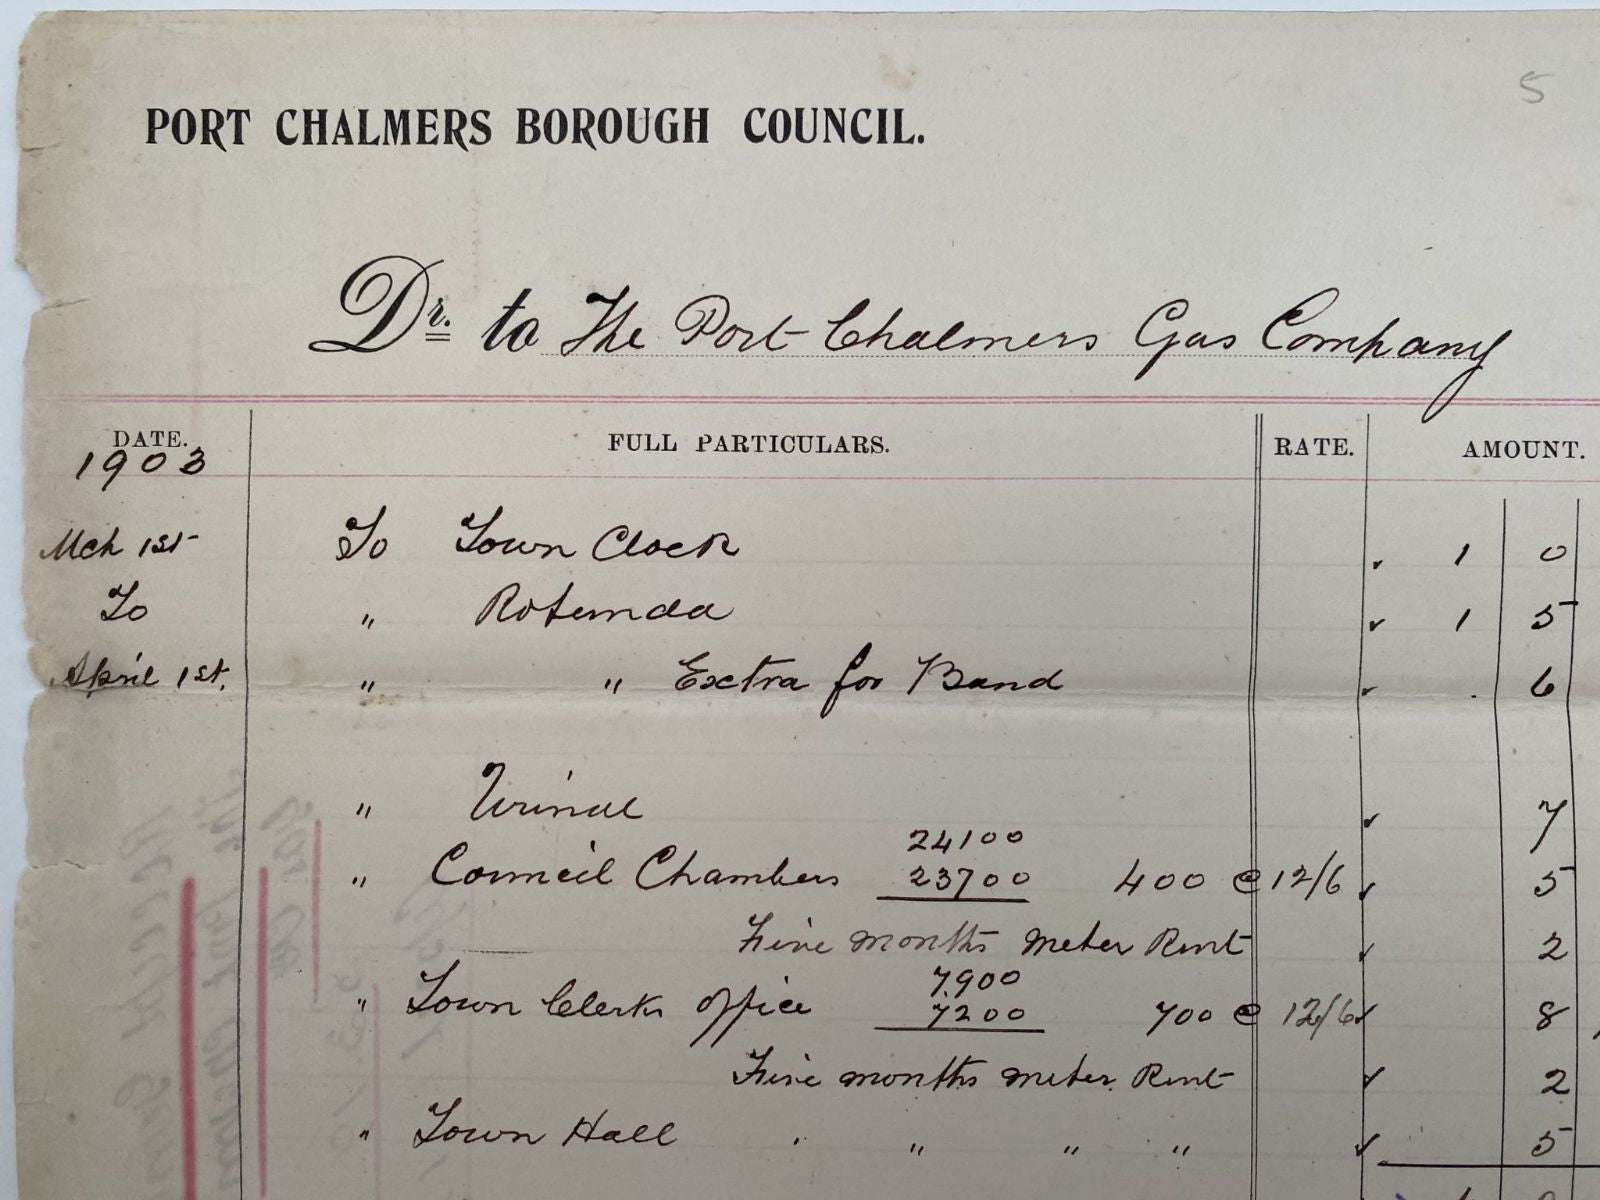 5
PORT CHALMERS BOROUGH COUNCIL.
Dr. to The Port Chalmers Gas Company
DATE. FULL PARTICULARS. RATE. AMOUNT.
1903
Mch 1st To Town Clock 1 0
To " Rotunda 1 5
April 1st. " " Exctra for Band . 6
" Urinal 7
24100
" Council Chambers 23700 400 @ 12/6 5
Five months meter Rent 2
7900
" Town Clerks office 7200 700 @ 12/6 8
Five months meter Rent 2
" Town Hall " " " " 5